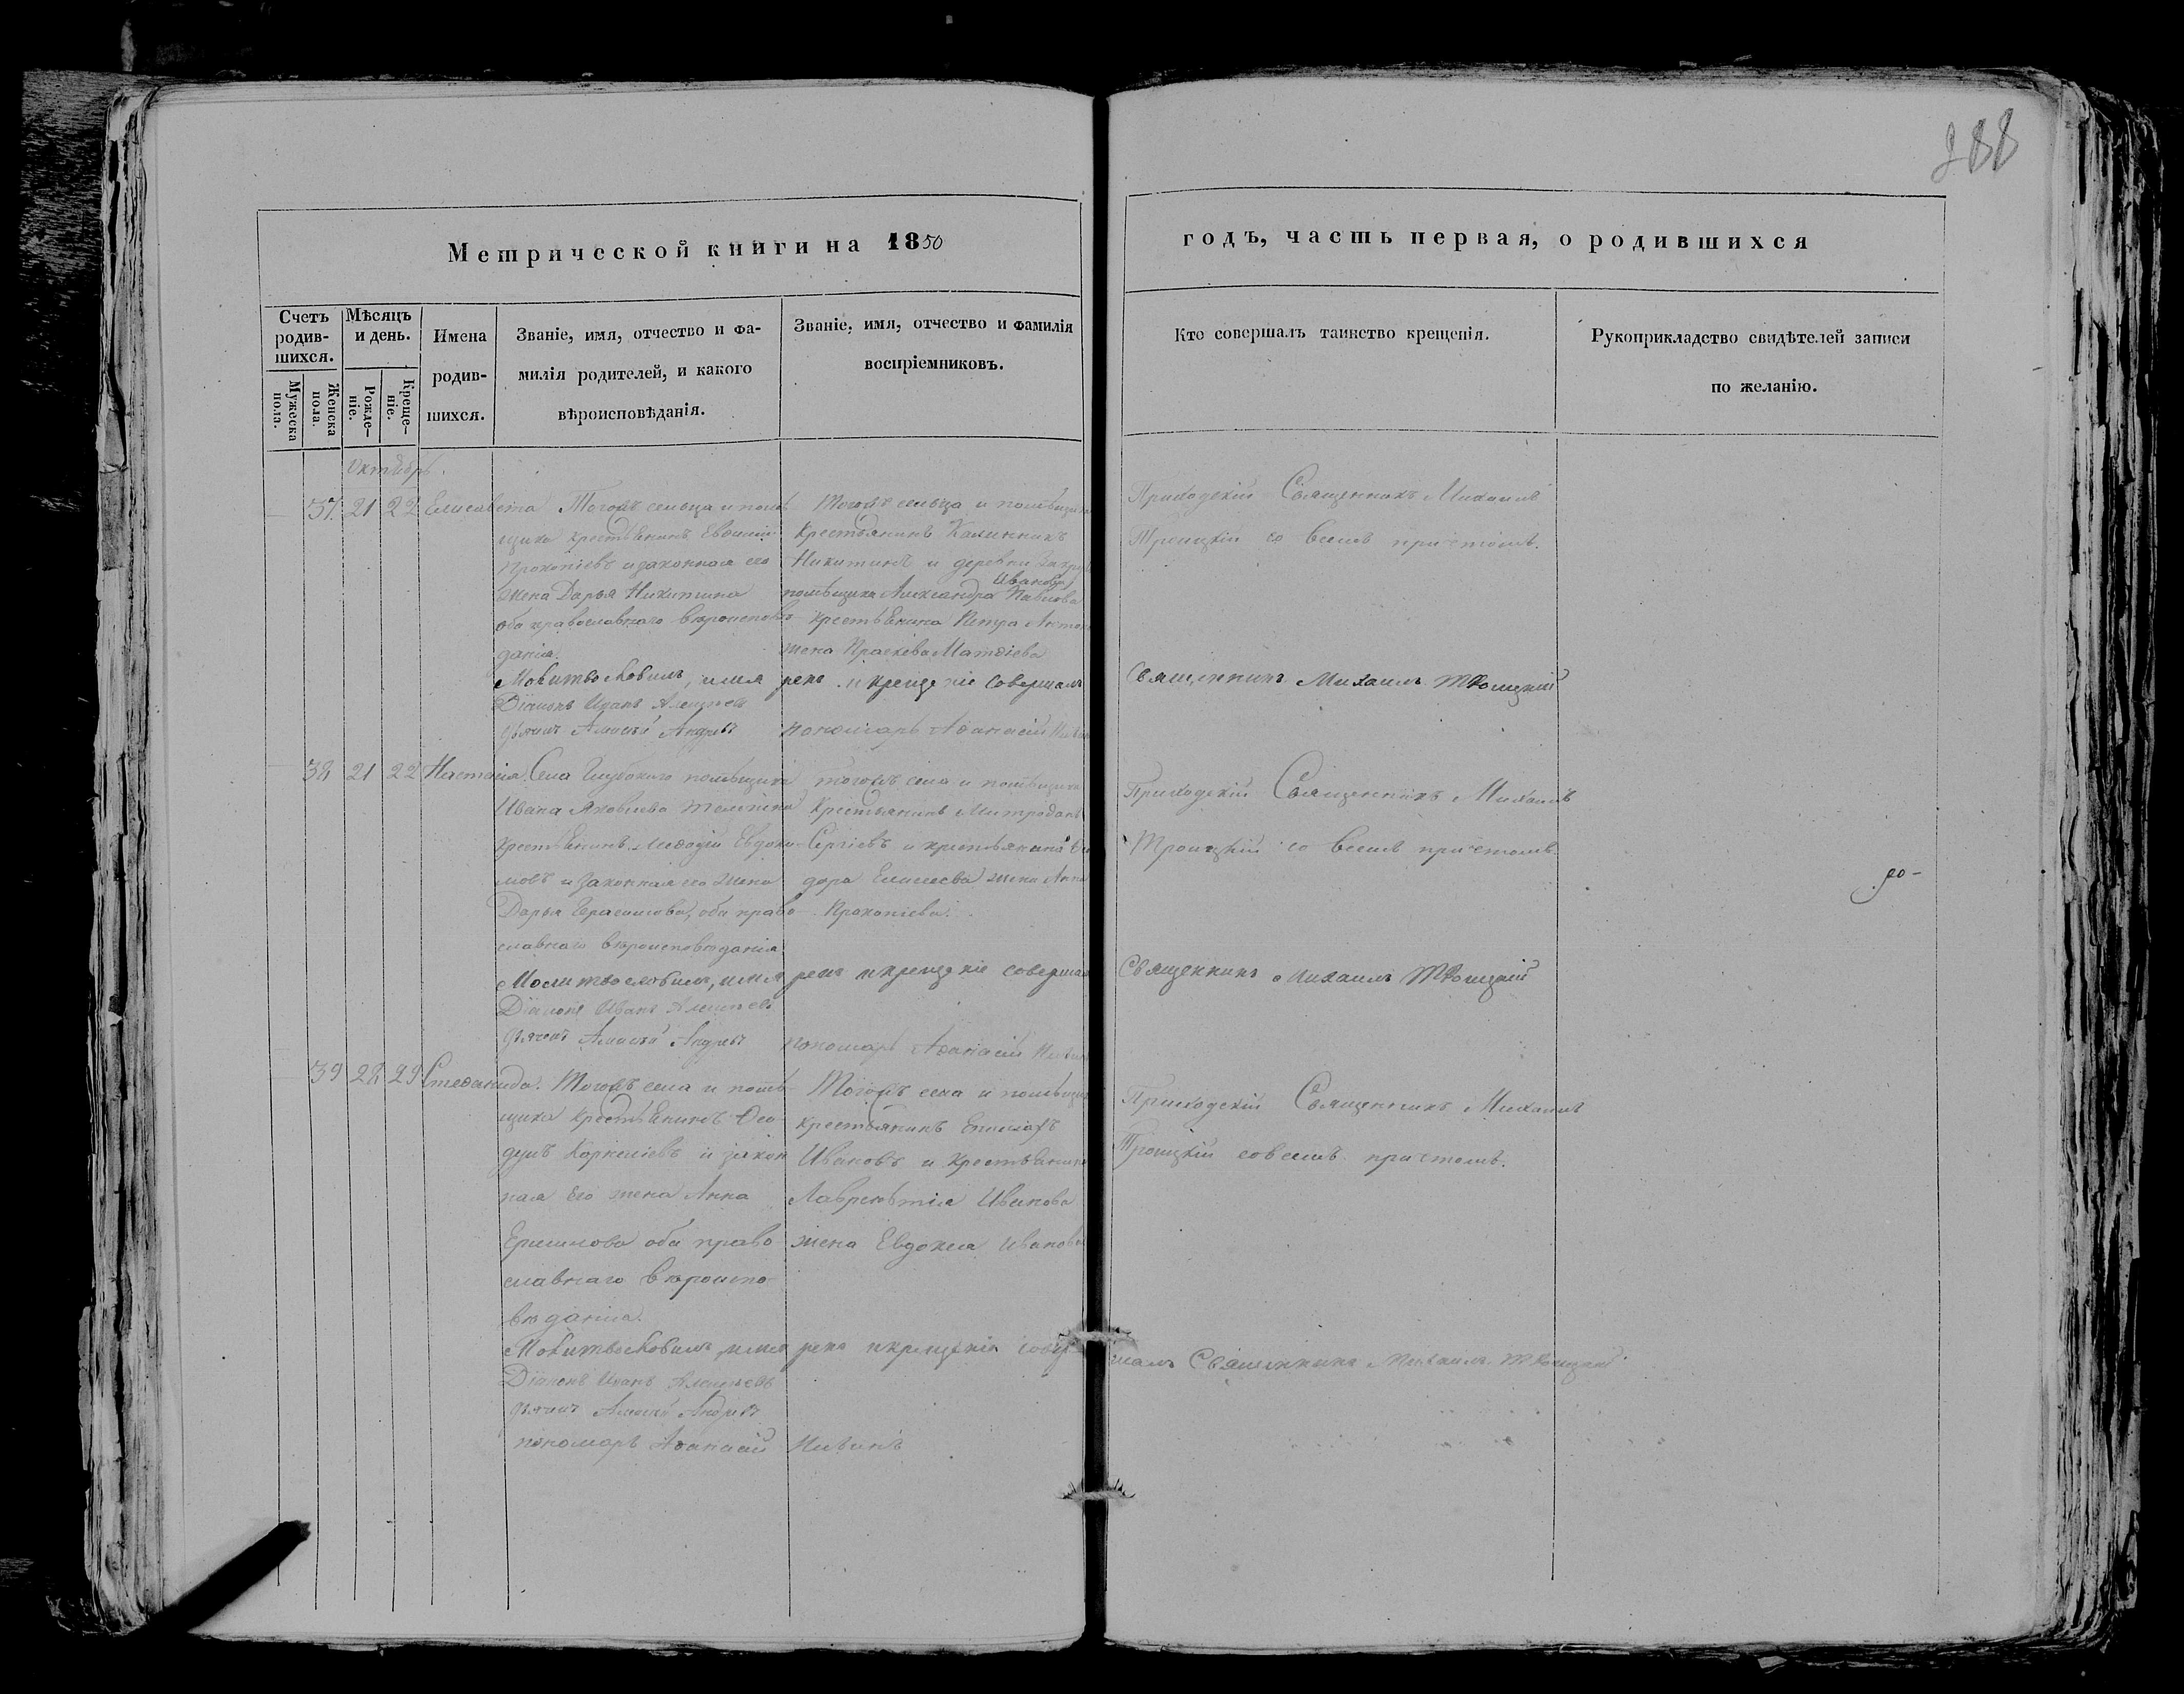 288
Метрической книги на 1850
годъ, часть первая, о родившихся
Счетъ родившихся.
Мужеска пола.
Женска пола.
Мѣсяцъ и день.
Рожденіе.
Крещеніе.
Имена
родив-
шихся.
Званіе, имя, отчество и фа-
милія родителей, и какого
вѣроисповѣданія.
Званіе, имя, отчество и фамилія
воспріемниковъ.
Кто совершалъ таинство крещенія.
Рукоприкладство свидѣтелей записи
по желанію.
Октябрь.
37. 21 22 Елисавета
Тогожъ сельца и помѣ
щика крестьянинъ Евѳимій
Прокопіевъ и законная его
жена Дарья Никитина
оба православнаго вѣроисповѣ
данія.
Тогожъ сельца и помѣщика
крестьянинъ Калинникъ
Никитинъ и деревни
Иванова
помѣщика Александра Павлова
крестьянина Петра
жена Праскева Матѳіева
Приходскій Священникъ Михаилъ
Троицкій со всемъ причтомъ.
Молитвословилъ, имя рекъ и крещеніе совершалъ
Священникъ Михаилъ Троицкій
Діаконъ Иванъ Алексѣевъ
Дьячекъ Алексѣй Андреевъ
пономарь Аѳанасій
38 21 22 Настасія
Села Глубокаго помѣщика
Ивана Яковлева
крестьянинъ Меѳодій Евдоки
мовъ и законная его жена
Дарья Герасимова, оба право
славнаго вѣроисповѣданія
тогожъ села и помѣщика
крестьянинъ Митрофанъ
Сергіевъ и крестьянина Ѳео
дора Елисеева жена Анна
Прокопіева.
Приходскій Священникъ Михаилъ
Троицкій со всемъ причтомъ
Молитвословилъ, имя рекъ и крещеніе совершалъ
Священникъ Михаилъ Троицкій
Діаконъ Иванъ Алексѣевъ
Дьячекъ Алексѣй Андреевъ
пономарь Аѳанасій
39 28 29 Стефанида.
Тогожъ села и помѣ
щика крестьянинъ Ѳео
дулъ Корнеліевъ и закон
ная его жена Анна
Ермилова оба право
славнаго вѣроиспо
вѣданія.
Тогожъ села и помѣщика
крестьянинъ
Ивановъ и крестьянина
Лаврентія Иванова
жена Евдокія Иванова
Приходскій Священникъ Михаилъ
Троицкій со всемъ причтомъ.
Молитвословилъ, имя рекъ и крещеніе совершалъ Священникъ Михаилъ Троицкій
Діаконъ Иванъ Алексѣевъ
Дьячекъ Алексѣй Андреевъ
пономарь Аѳанасій